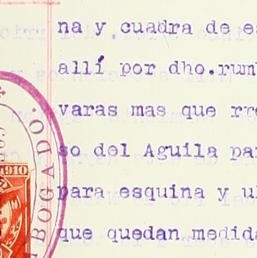 na y cuadra de es
allí por dho.rum
varas mas que rre
so del Aguila pa
para esquina y u
que quedan medida
BOGADO.
910